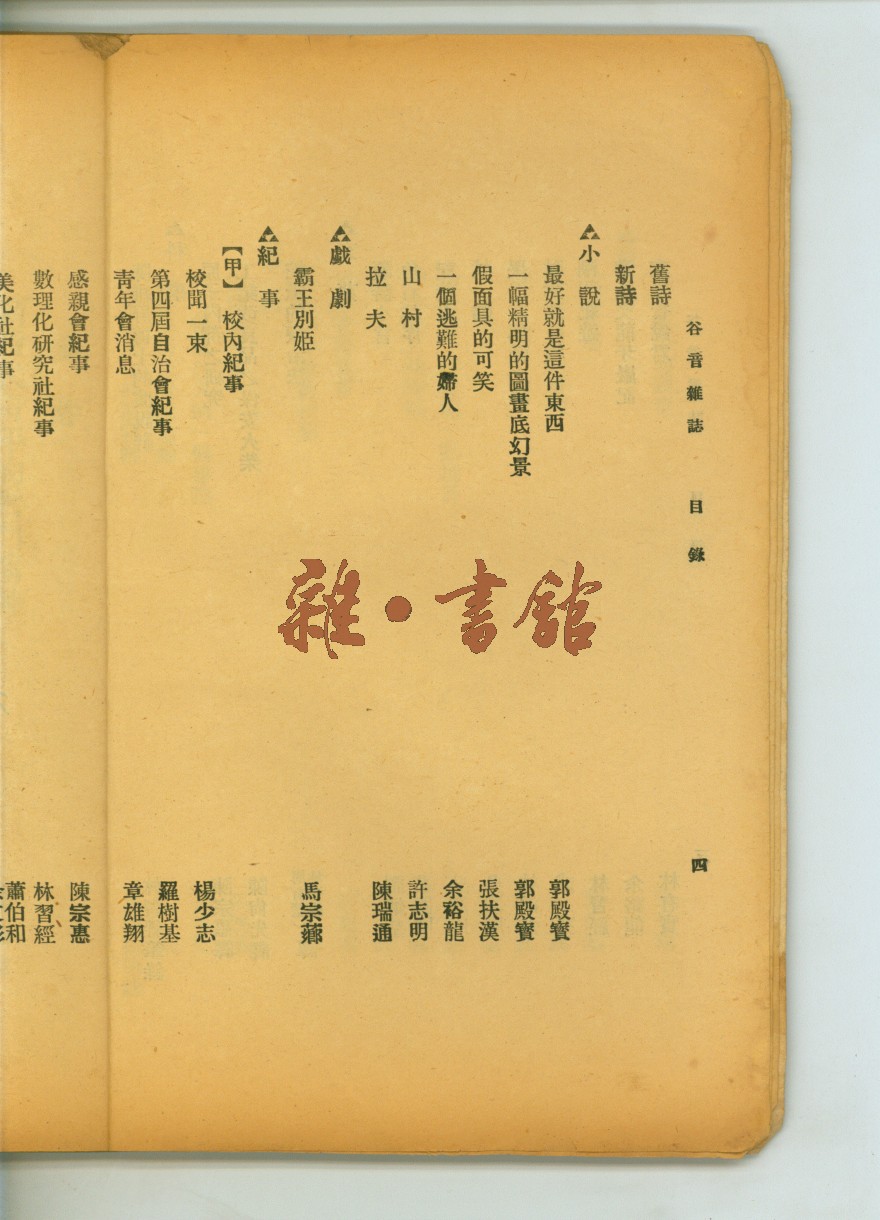 谷音雜誌 目錄 四
舊詩
新詩
小說
最好就是這件東西 郭殿寶
一幅精明的圖畫底幻景 郭殿寶
假面具的可笑 張扶漢
一個逃難的婦人 余裕龍
山村 許志明
拉夫 陳瑞通
戲劇
霸王別姬 馬宗薌
紀事
【甲】校內紀事
校聞一束 楊少志
第四屆自治會紀事 羅樹基
青年會消息 章雄翔
感親會紀事 陳宗惠
數理化研究社紀事 林習經
美化社紀事 蕭伯和
雜·書館